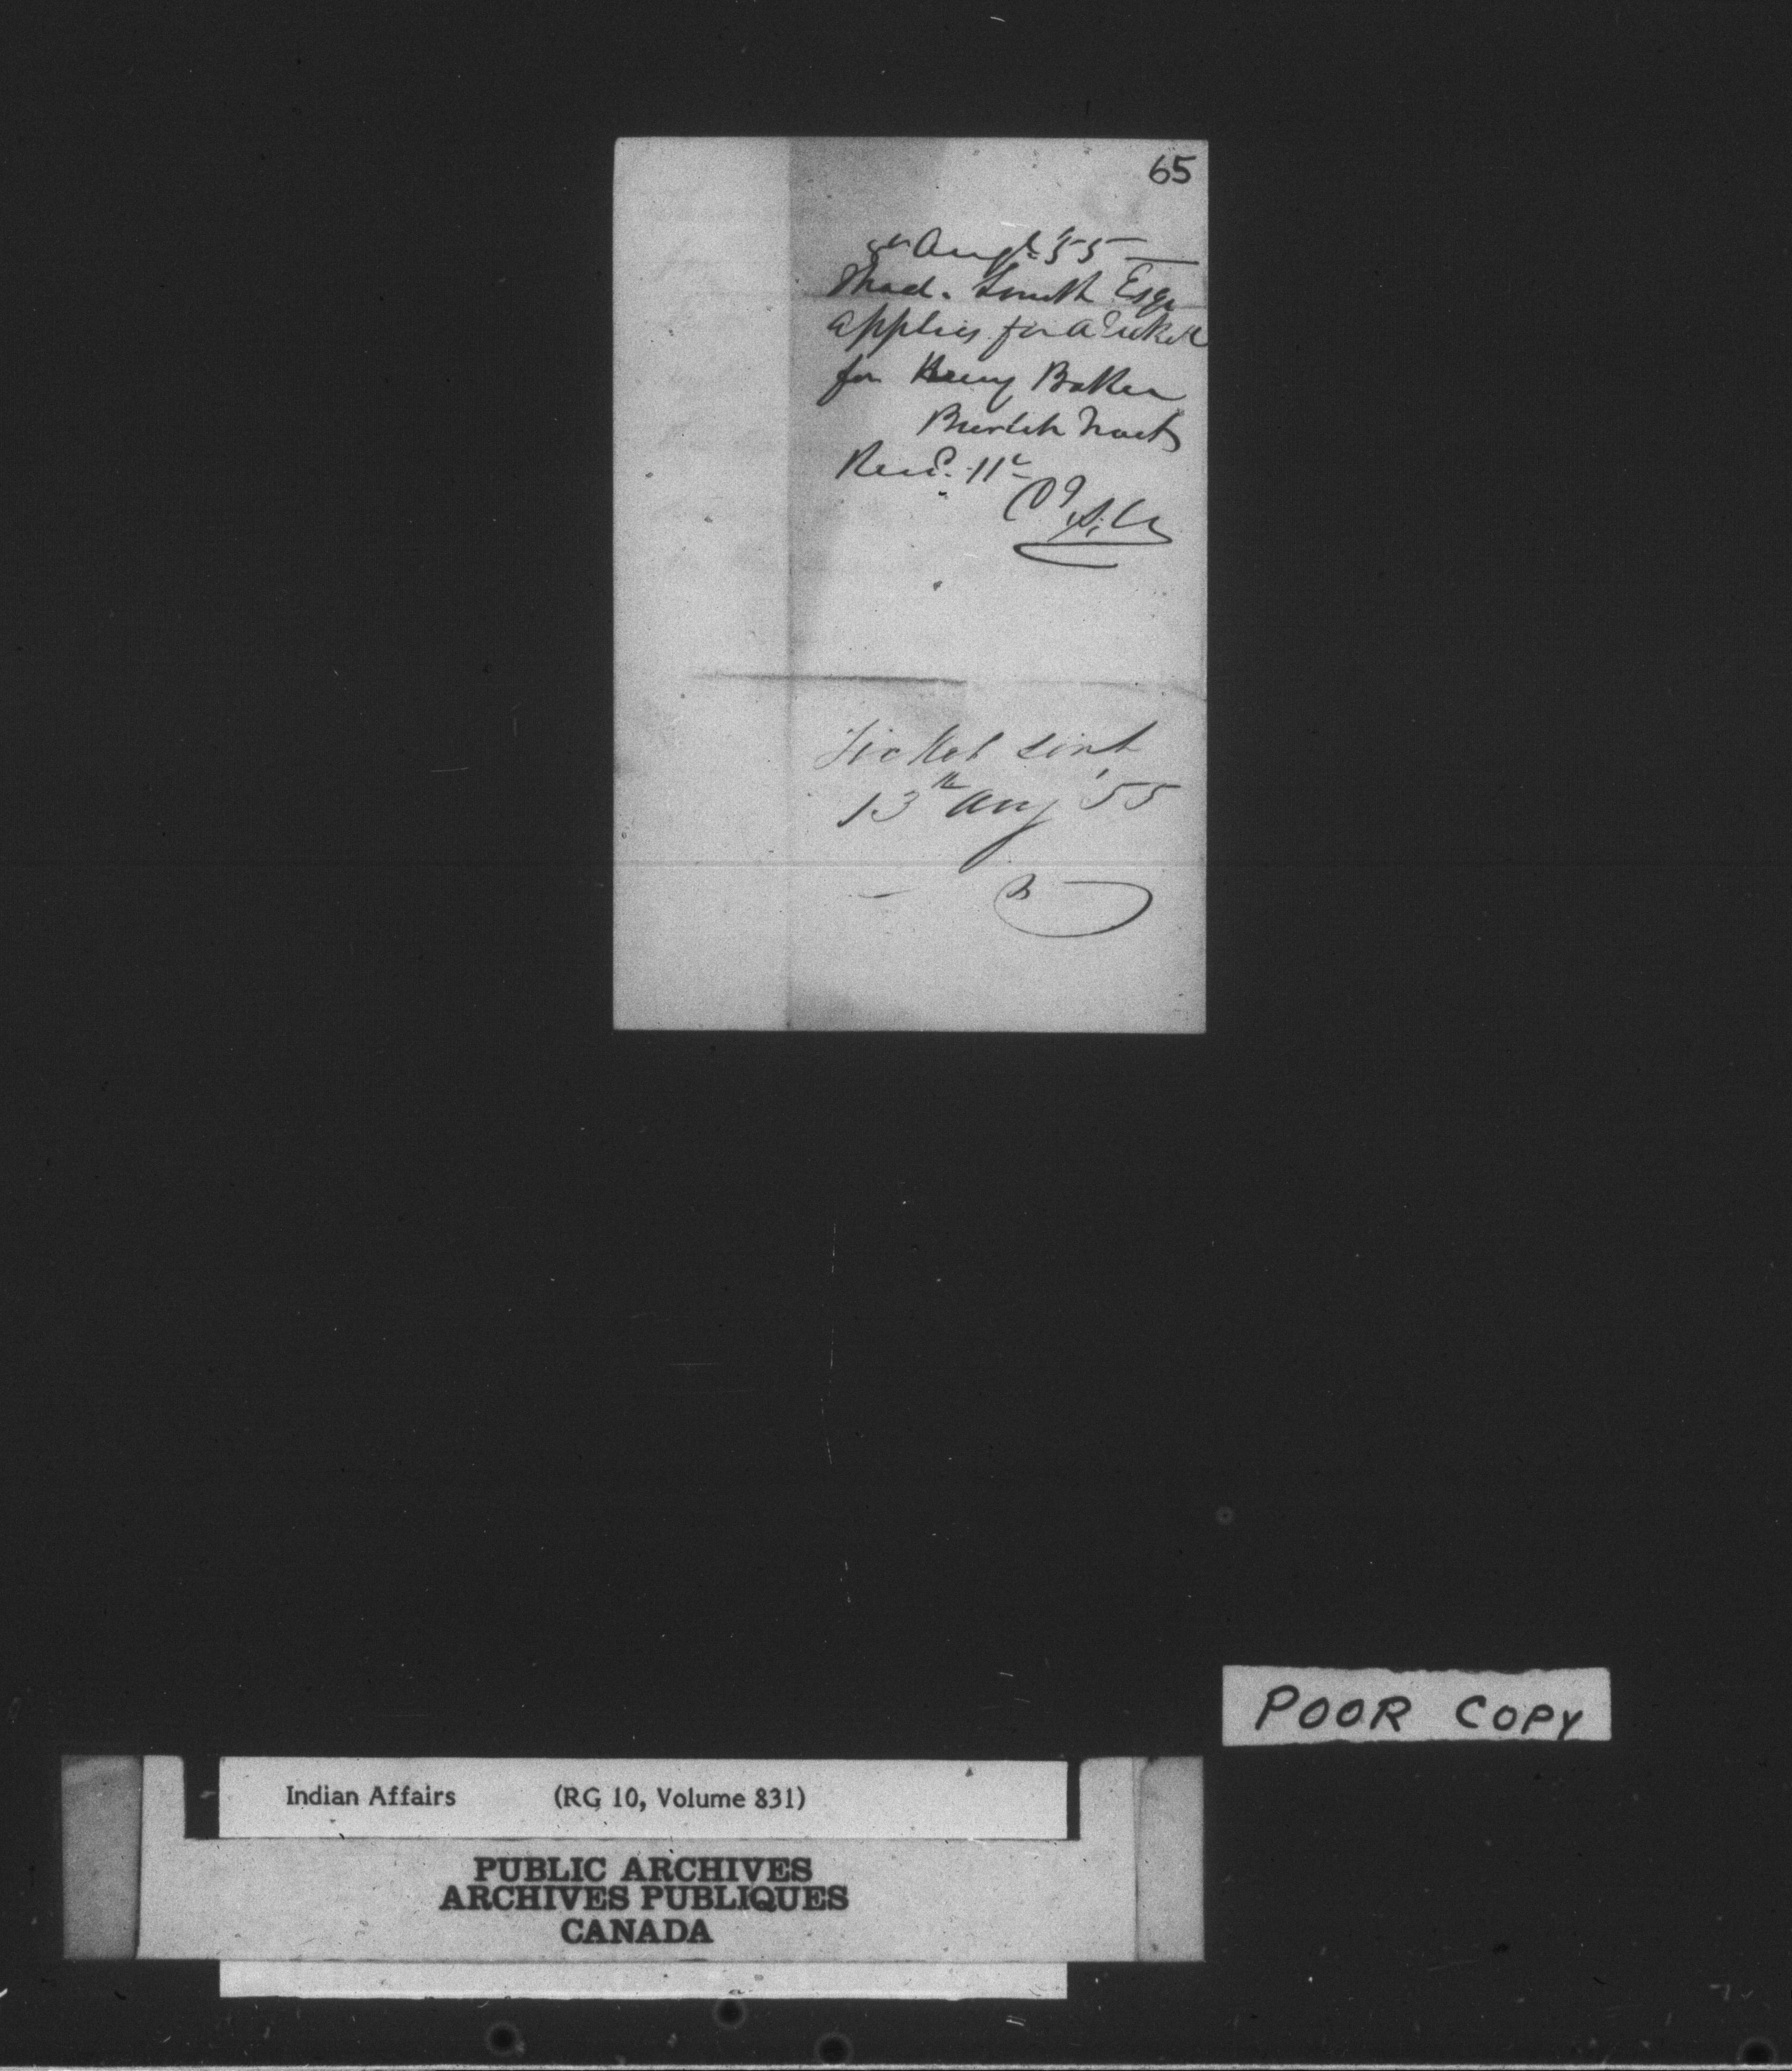 65
Augt '55
Thad. Smith Esqr
applies for a Ticket
for Henry Baker
Tract
Recd. 11th
Ticket sent
13th Aug '55
POOR COPY
Indian Affairs (RG 10, Volume 831)
PUBLIC ARCHIVES
ARCHIVES PUBLIQUES
CANADA